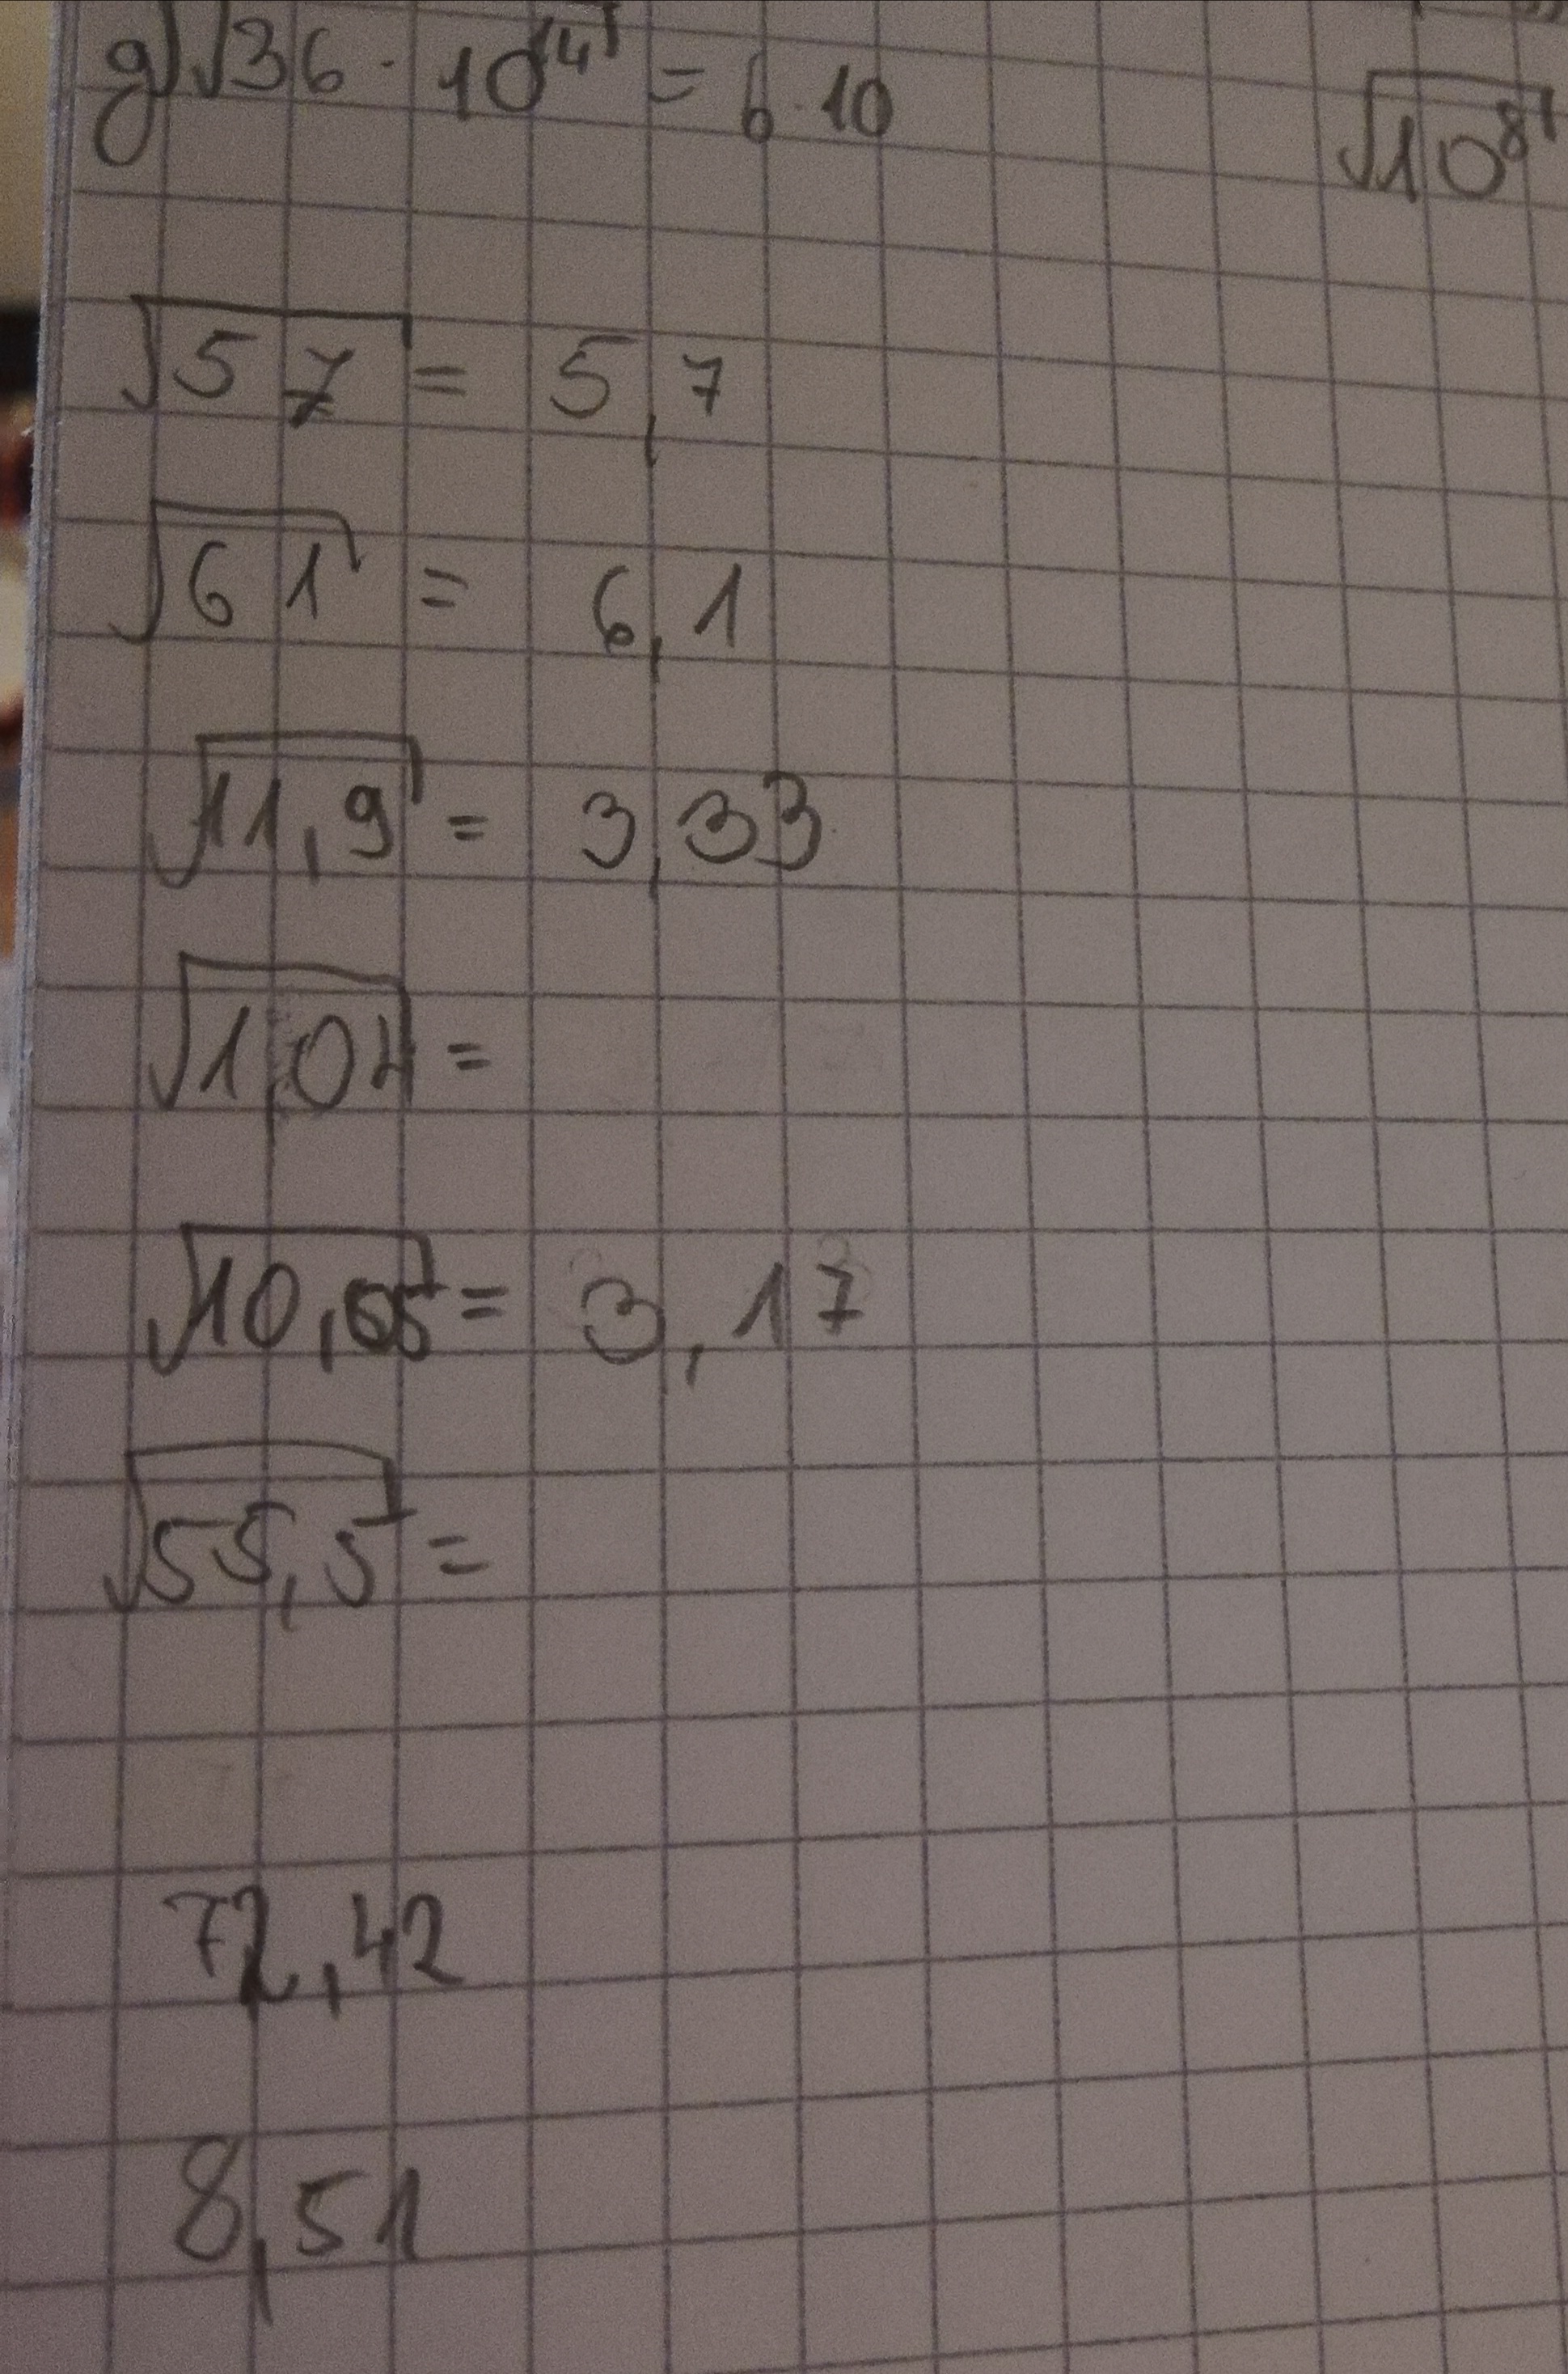 g) √36 · 10¹⁴ = 6·10
√10⁸
√57 = 5,7
√61 = 6,1
√11,9 = 3,33
√1,04 =
√10,05 = 3,17
√55,5 =
72,42
8,51